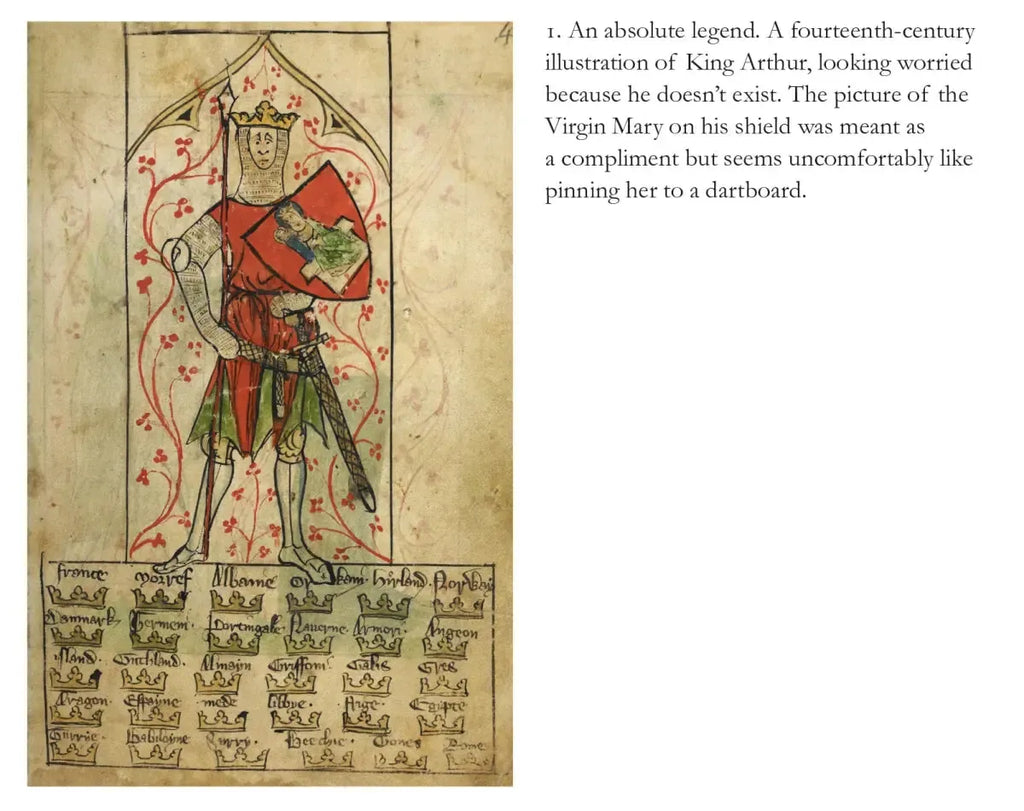 4
france norref Albanie Or kani hirland Norway
Danmark Germem Portingale Nauerne Armori Angeon
island Guthland Almain Griffoni Galis Gres
Aragon Espayne mede libbye Arge Egipte
Surrye Babiloyne
1. An absolute legend. A fourteenth-century
illustration of King Arthur, looking worried
because he doesn’t exist. The picture of the
Virgin Mary on his shield was meant as
a compliment but seems uncomfortably like
pinning her to a dartboard.